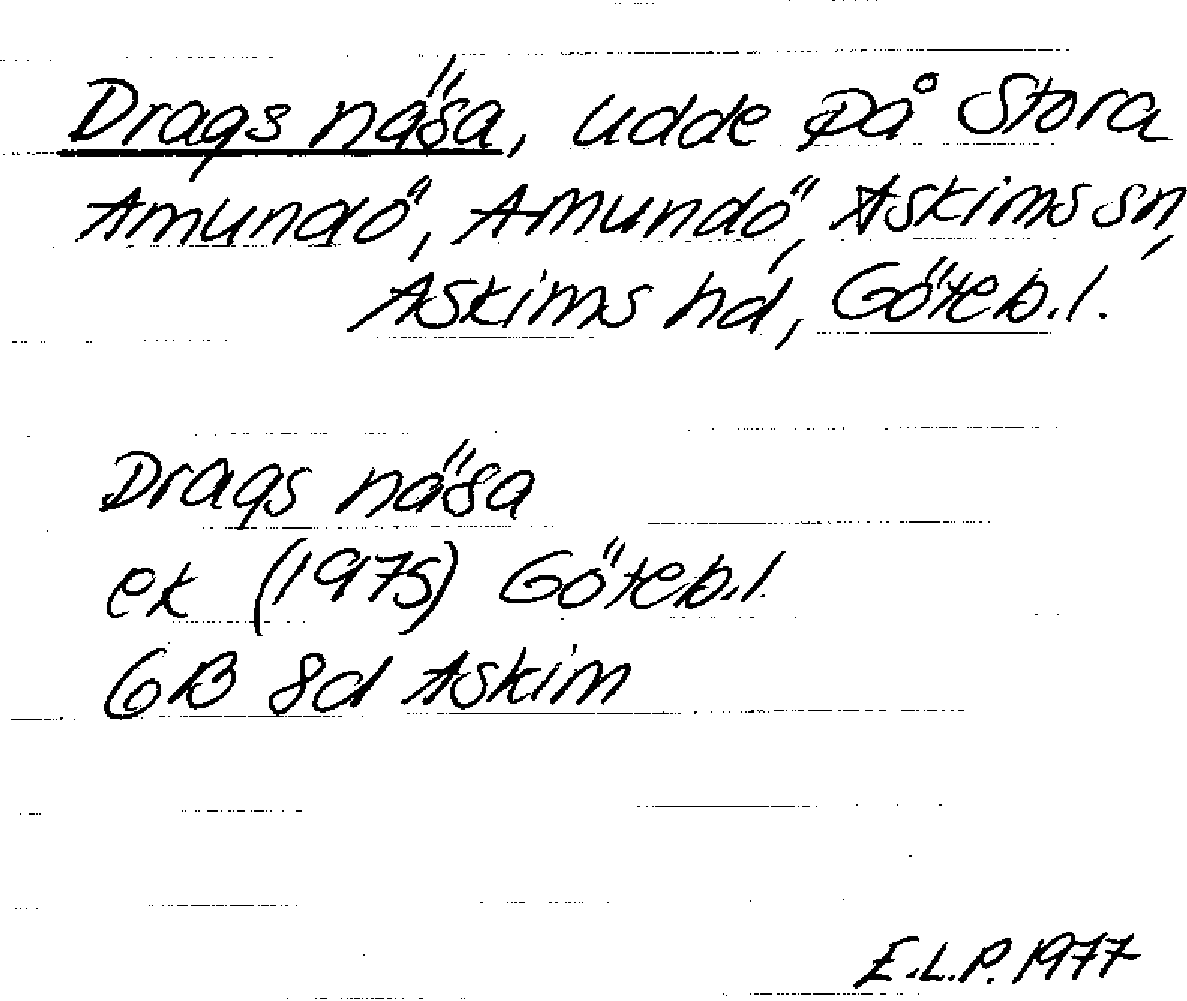 Drags näsa, udde på Stora
Amundö, Amundö, Askims sn,
Askims hd, Göteb.l.
Drags näsa
ek (1975) Göteb.l.
GB 8d Askim
E.L.P. 1977